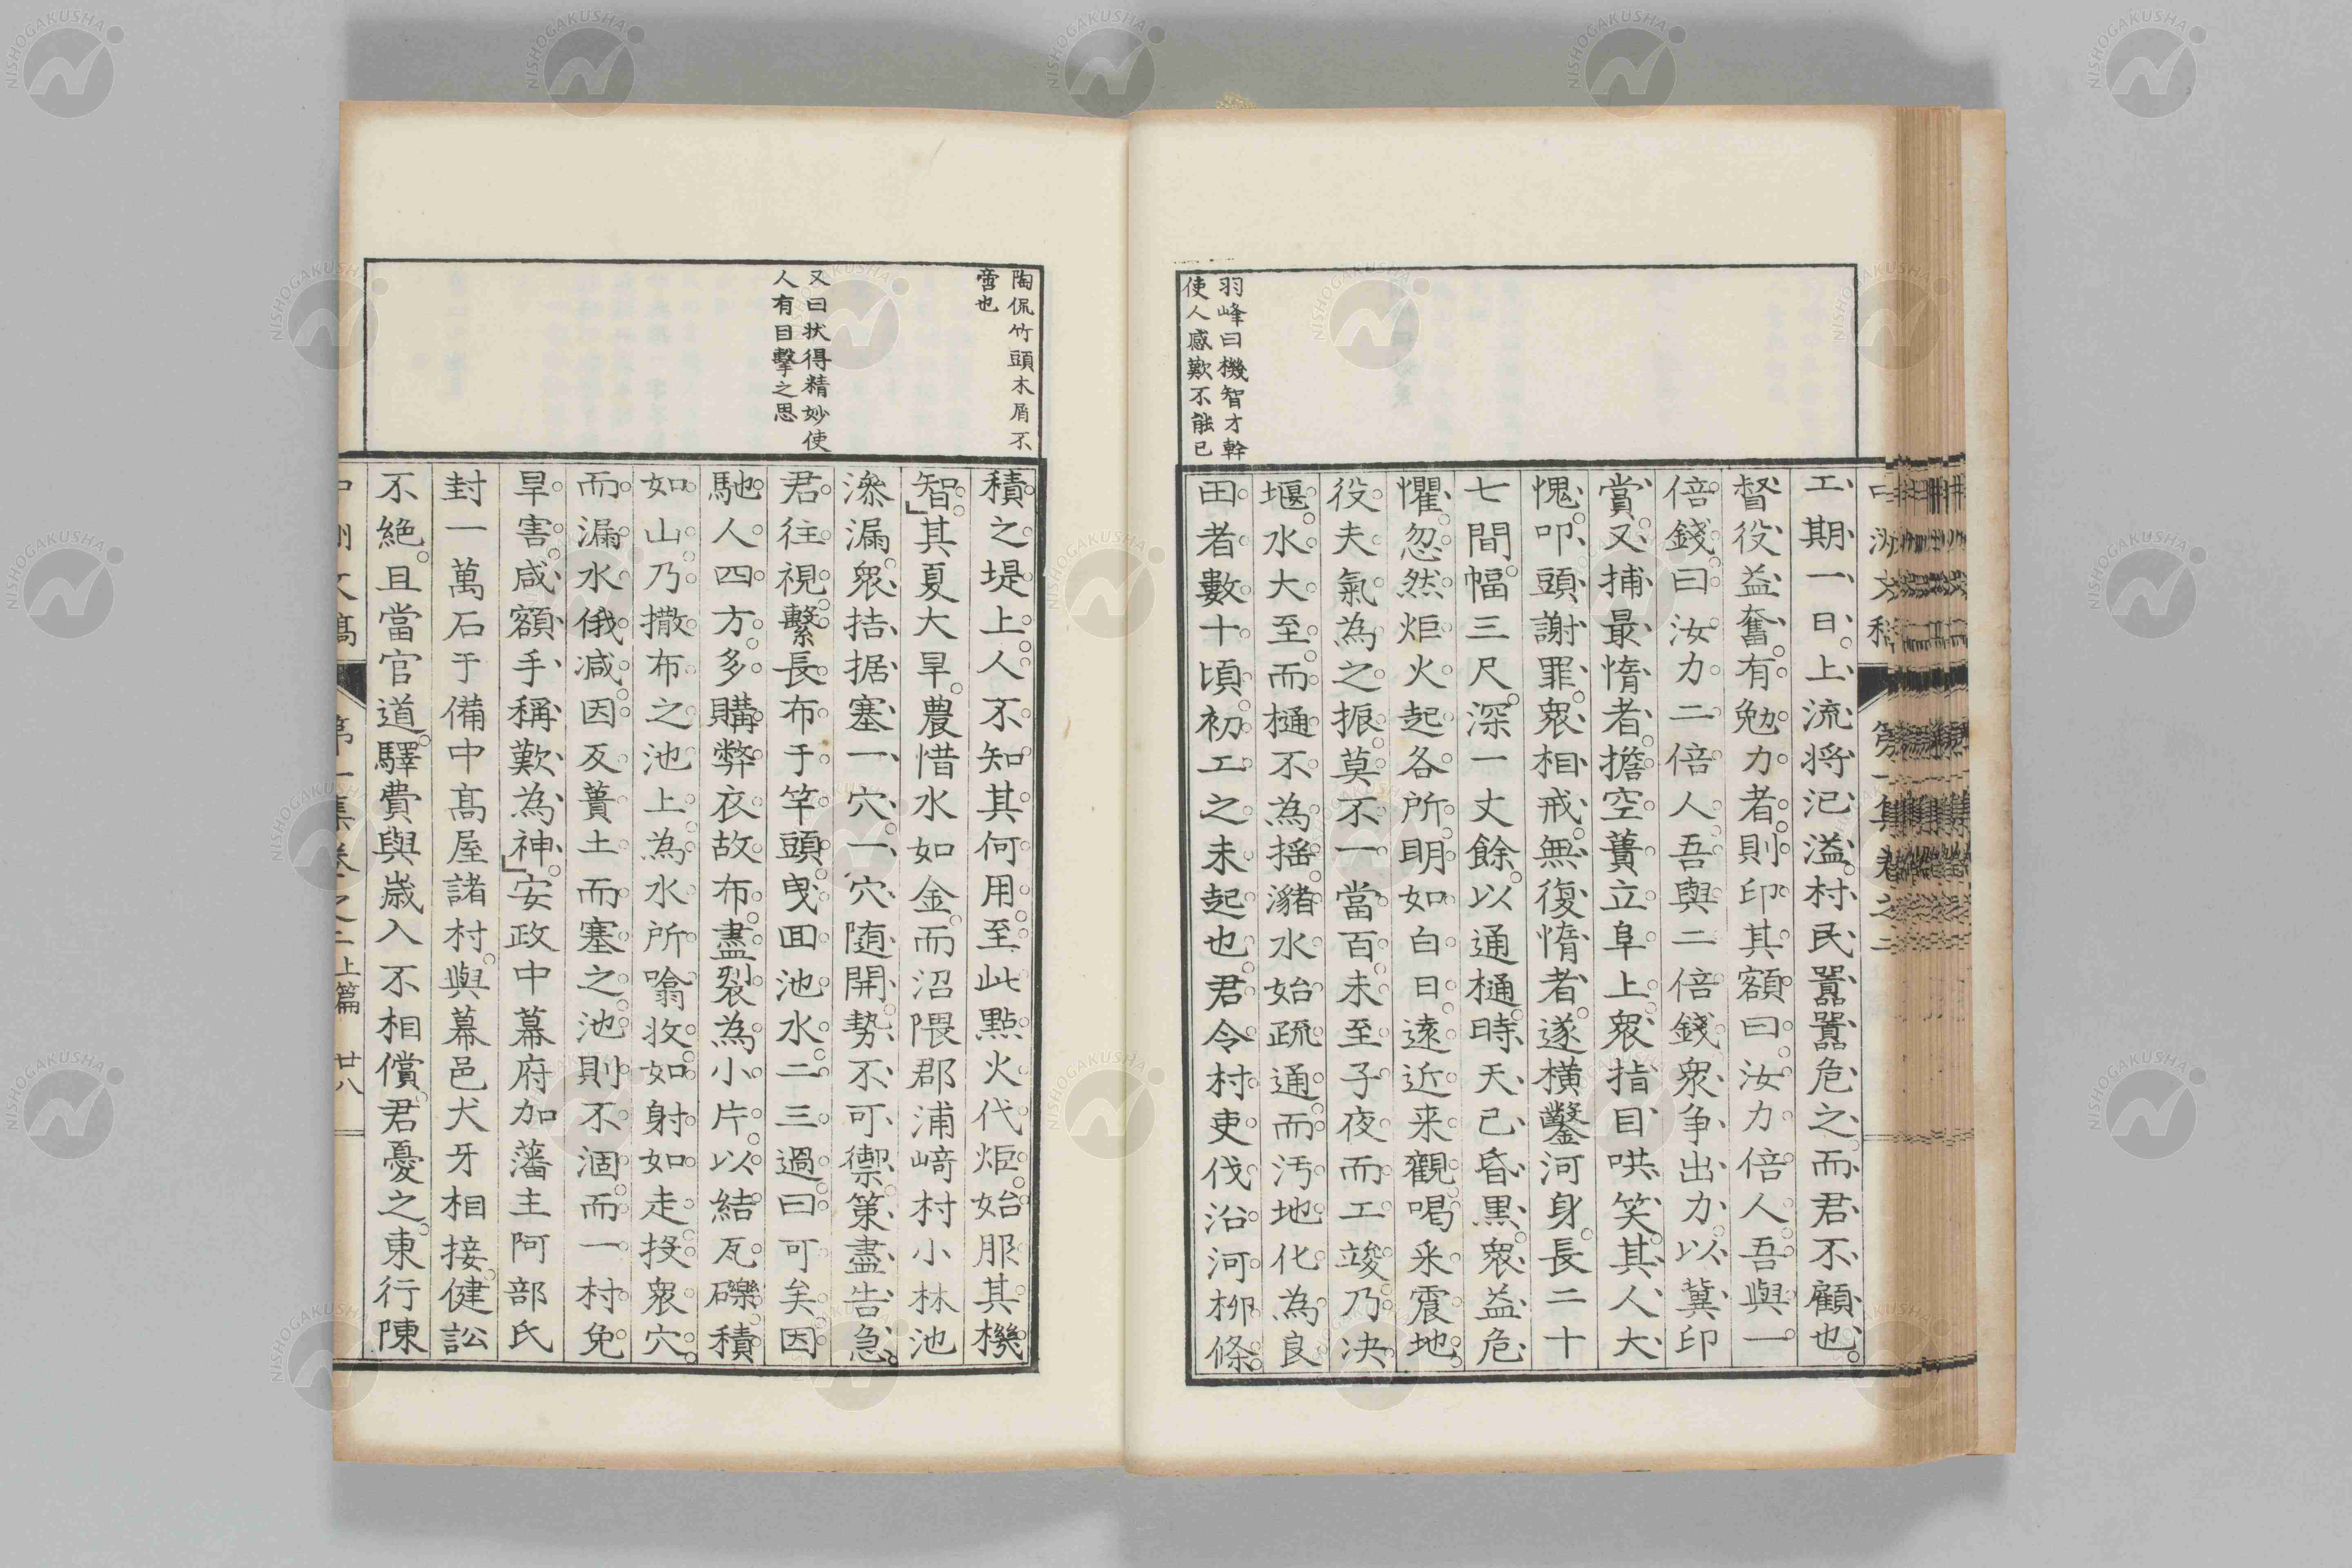 羽峰曰機智才幹
使人感歎不能已
工期一日上流將汜溢村民囂囂危之而君不顧也
督役益奮有勉力者則印其額曰汝力倍人吾與一
倍錢曰汝力二倍人吾與二倍錢衆爭出力以冀印
賞又捕最惰者擔空蕢立阜上衆指目哄笑其人大
愧叩頭謝罪衆相戒無復惰者遂橫鑿河身長二十
七間幅三尺深一丈餘以通樋時天已昏黑衆益危
懼忽然炬火起各所明如白日遠近来觀喝采震地
役夫氣為之振莫不一當百未至子夜而工竣乃决
堰水大至而樋不為搖瀦水始疏通而汚地化為良
田者數十頃初工之未起也君令村吏伐沿河柳條
陶侃竹頭木屑不
啻也
又曰狀得精妙使
人有目擊之思
積之堤上人不知其何用至此點火代炬始服其機
智其夏大旱農惜水如金而沼隈郡浦崎村小林池
滲漏衆拮据塞一穴一穴随開勢不可禦策盡告急
君往視繫長布于竿頭曳囬池水二三過曰可矣因
馳人四方多購弊衣故布盡裂為小片以結瓦礫積
如山乃撒布之池上為水所噏收如射如走投衆穴
而漏水俄减因及蕢土而塞之池則不涸而一村免
旱害咸額手稱歎為神安政中幕府加藩主阿部氏
封一萬石于備中髙屋諸村與幕邑犬牙相接健訟
不絶且當官道驛費與歳入不相償君憂之東行陳
第一集卷之二上篇 廿八